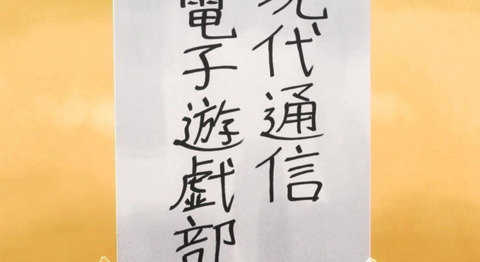 現代通信
電子遊戯部